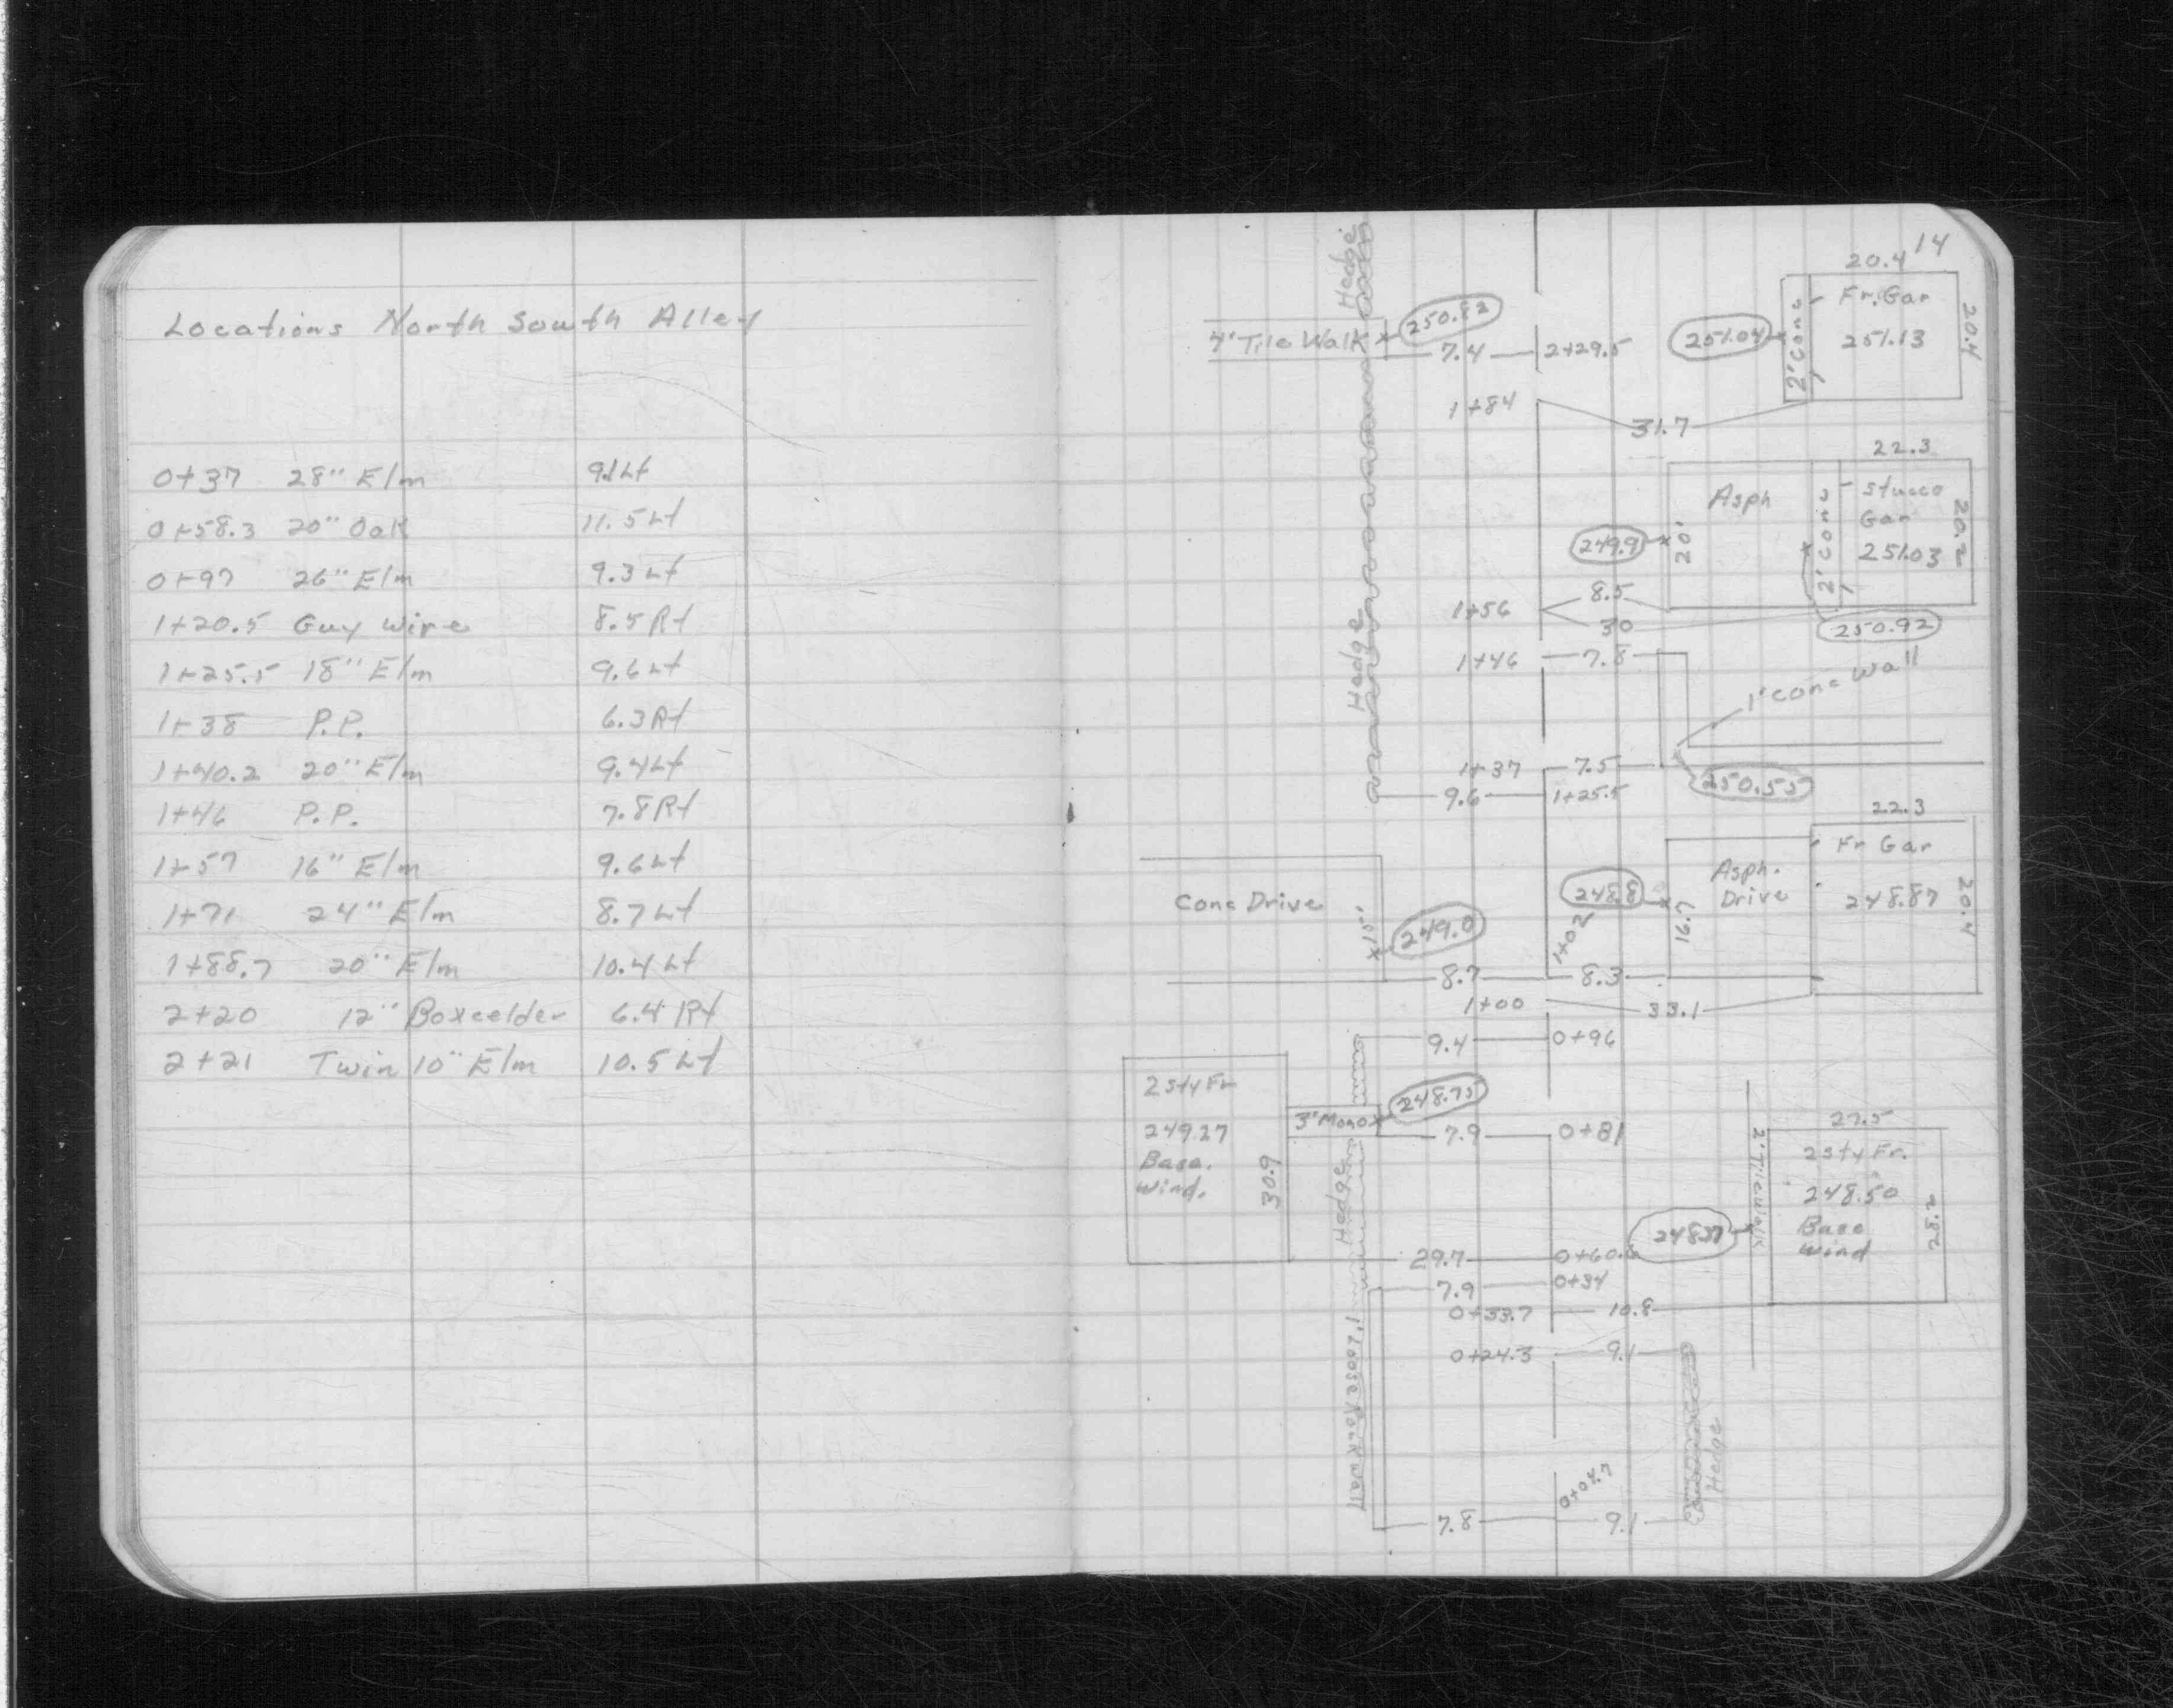 Locations North South Alley
0+37 28" Elm 9.1 Lt
0+58.3 20" Oak 11.5 Lt
0+97 26" Elm 9.3 Lt
1+20.5 Guy Wire 8.5 Rt
1+25.5 18" Elm 9.6 Lt
1+38 P.P. 6.3 Rt
1+40.2 20" Elm 9.4 Lt
1+46 P.P. 7.8 Rt
1+57 16" Elm 9.6 Lt
1+71 24" Elm 8.7 Lt
1+88.7 20" Elm 10.4 Lt
2+20 12" Boxcelder 6.4 Rt
2+21 Twin 10" Elm 10.5 Lt
14
20.4
Hedge
Fr. Gar
250.82
4' Tile Walk
7.4 2+29.5
251.04
2' Conc
251.13
20.4
1+84
31.7
22.3
Asph
2' Conc
Stucco
Gar
251.03
20.2
249.9
20'
8.5
1+56
30
250.92
Hedge
1+46 7.8
1' Conc Wall
1+37 7.5
9.6 1+25.5
250.55
22.3
Fr Gar
Asph.
Drive
248.87
20.4
248.8
16.7
Conc Drive
249.0
1+02
8.7 8.3
1+00 33.1
9.4 0+96
2 sty Fr
249.27
Base.
Wind.
30.9
3' Mono
248.75
7.9 0+81
Hedge
27.5
2' Tile Walk
2 sty Fr.
248.50
Base
Wind
28.2
29.7 0+60.6
7.9 0+34
0+33.7 10.8
0+24.3 9.1
1' Loose Rock Wall
Hedge
0+04.7
7.8 9.1